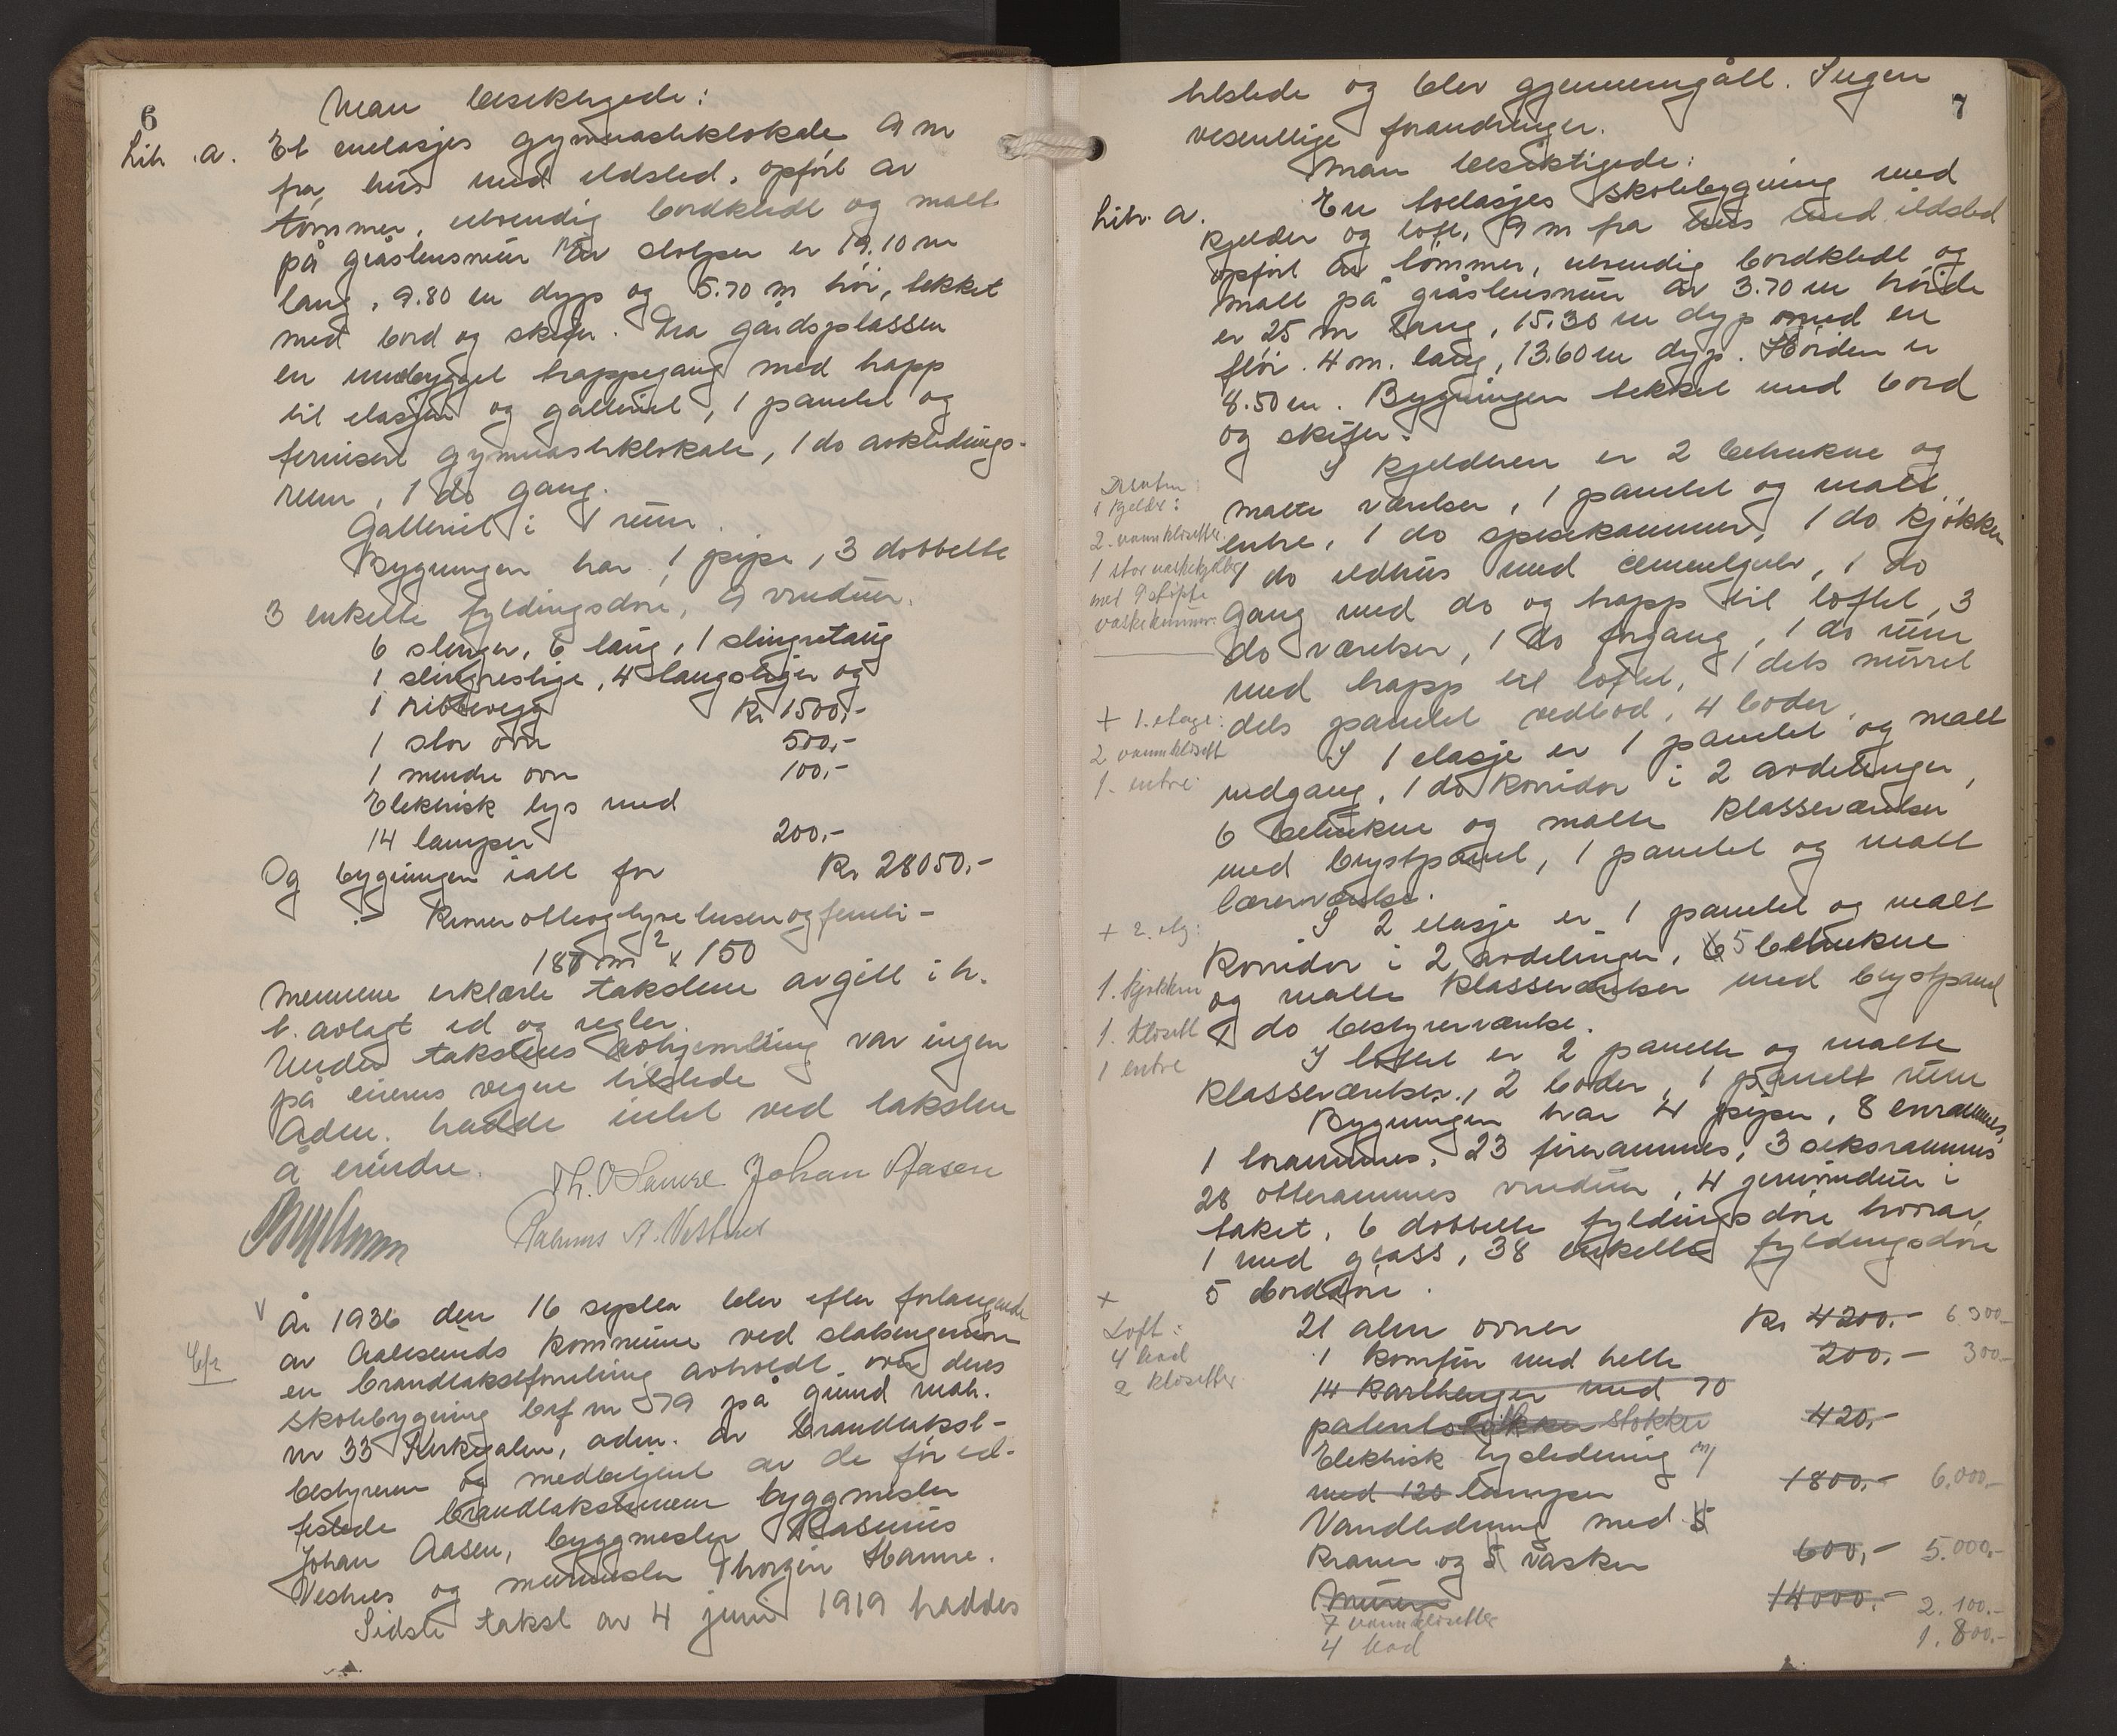 6
Man besiktigede:
Litr. a. Et enetasjes gymnastiklokale 9 m
fra hus med ildsted, opført av
tømmer, utvendig bordkledt og malt
på gråstensmur og stolper er 19.10 m
lang, 9.80 m dyp og 5.70 m høi, tekket
med bord og skifer. Fra gårdsplassen
en innbygget trappegang med trapp
til etasjen og galleriet, 1 panelet og
fernisert gymnastiklokale, 1 do avkledings-
rum, 1 do gang.
Galleriet i 1 rum.
Bygningen har 1 pipe, 3 dobbelte
3 enkelte fyldingsdøre, 9 vinduer.
6 slenger, 6 taug, 1 slingretaug
1 slingrestige, 4 langstiger og
1 ribbevegg Kr 1500,-
1 stor ovn 500,-
1 mindre ovn 100,-
Elektrisk lys med
14 lamper 200,-
Og bygningen ialt for Kr 28050,-
:- Kroner otteogtyve tusen og femti -
187 m2 x 150
Mennene erklærte taksten avgitt i h.
t. avlagt ed og regler.
Under takstens avhjemling var ingen
på eierens vegne tilstede
Adm. hadde intet ved taksten
å erindre.
Th. O Hamre Johan Aasen
Rasmus A. Vestnes
V År 1936 den 16 septbr blev efter forlangende
av Aalesunds kommune ved stadsingeniøren
en brandtakstforretning avholdt over deres
skolebygning brf nr 79 på grund matr.
nr 33 Kirkegaten, adm. av brandtakst-
bestyreren og medbetjent av de før ed-
festede brandtakstmenn byggmester
Johan Aasen, byggmester Rasmus
Vestnes og murmester Thorgin Hamre.
Sidste takst av 4 juni 1919 haddes
7
tilstede og blev gjennemgått. Ingen
vesentlige forandringer.
Man besiktigede:
Litr. a. En toetasjes skolebygning med
kjelder og loft, 9 m fra hus med ildsted
opført av tømmer, utvendig bordkledt og
malt på gråstensmur av 3.70 m høide
er 25 m lang, 15.30 m dyp med en
fløi 4 m. lang, 13.60 m dyp. Høiden er
8.50 m. Bygningen tekket med bord
og skifer.
I kjelderen er 2 betrukne og
malte værelser, 1 panelet og malt
entre, 1 do spisekammer, 1 do kjøkken
1 do ildhus med cementgulv, 1 do
gang med do og trapp til loftet, 3
do værelser, 1 do forgang, 1 do rum
med trapp til loftet, 1 dels murret
dels panelet vedbod, 4 boder.
i kjeld:
2. vannklosetter
1 stor vaskekjeller
med 9 støpte
vaskekummer.
I 1 etasje er 1 panelet og malt
indgang, 1 do korridor i 2 avdelinger,
6 betrukne og malte klasseværelser
med brystpanel, 1 panelet og malt
lærerværelse.
+ 1. etage:
2 vannklosett
1. entre
I 2 etasje er 1 panelet og malt
korridor i 2 avdelinger, 6 5 betrukne
og malte klasseværelser med brystpanel
1 do bestyrerværelse.
+ 2. etg:
1. kjøkken
1. klosett
1 entre
I loftet er 2 panelte og malte
klasseværelser, 2 boder, 1 panelt rum
Bygningen har 4 piper, 8 enrammes,
1 torammes, 23 firerammes, 3 seksrammes
28 otterammes vinduer, 4 jernvinduer i
taket, 6 dobbelte fyldingsdøre hvorav
1 med glass, 38 enkelte fyldingsdøre
5 borddøre.
+
Loft:
4 bad
2 klosetter
21 alm ovner Kr 4200.- 6.300.-
1 komfur med hette 200,- 300.-
14 karthenger med 70
patentstokker stokker 420,-
Elektrisk lysledning m/
med 120 lamper 1800,- 6.000,-
Vandledning med 5
kraner og 5 vasker 600,- 5.000,-
Muren 14000,-
7 vannklosetter 2.100.-
4 bad 1.800,-